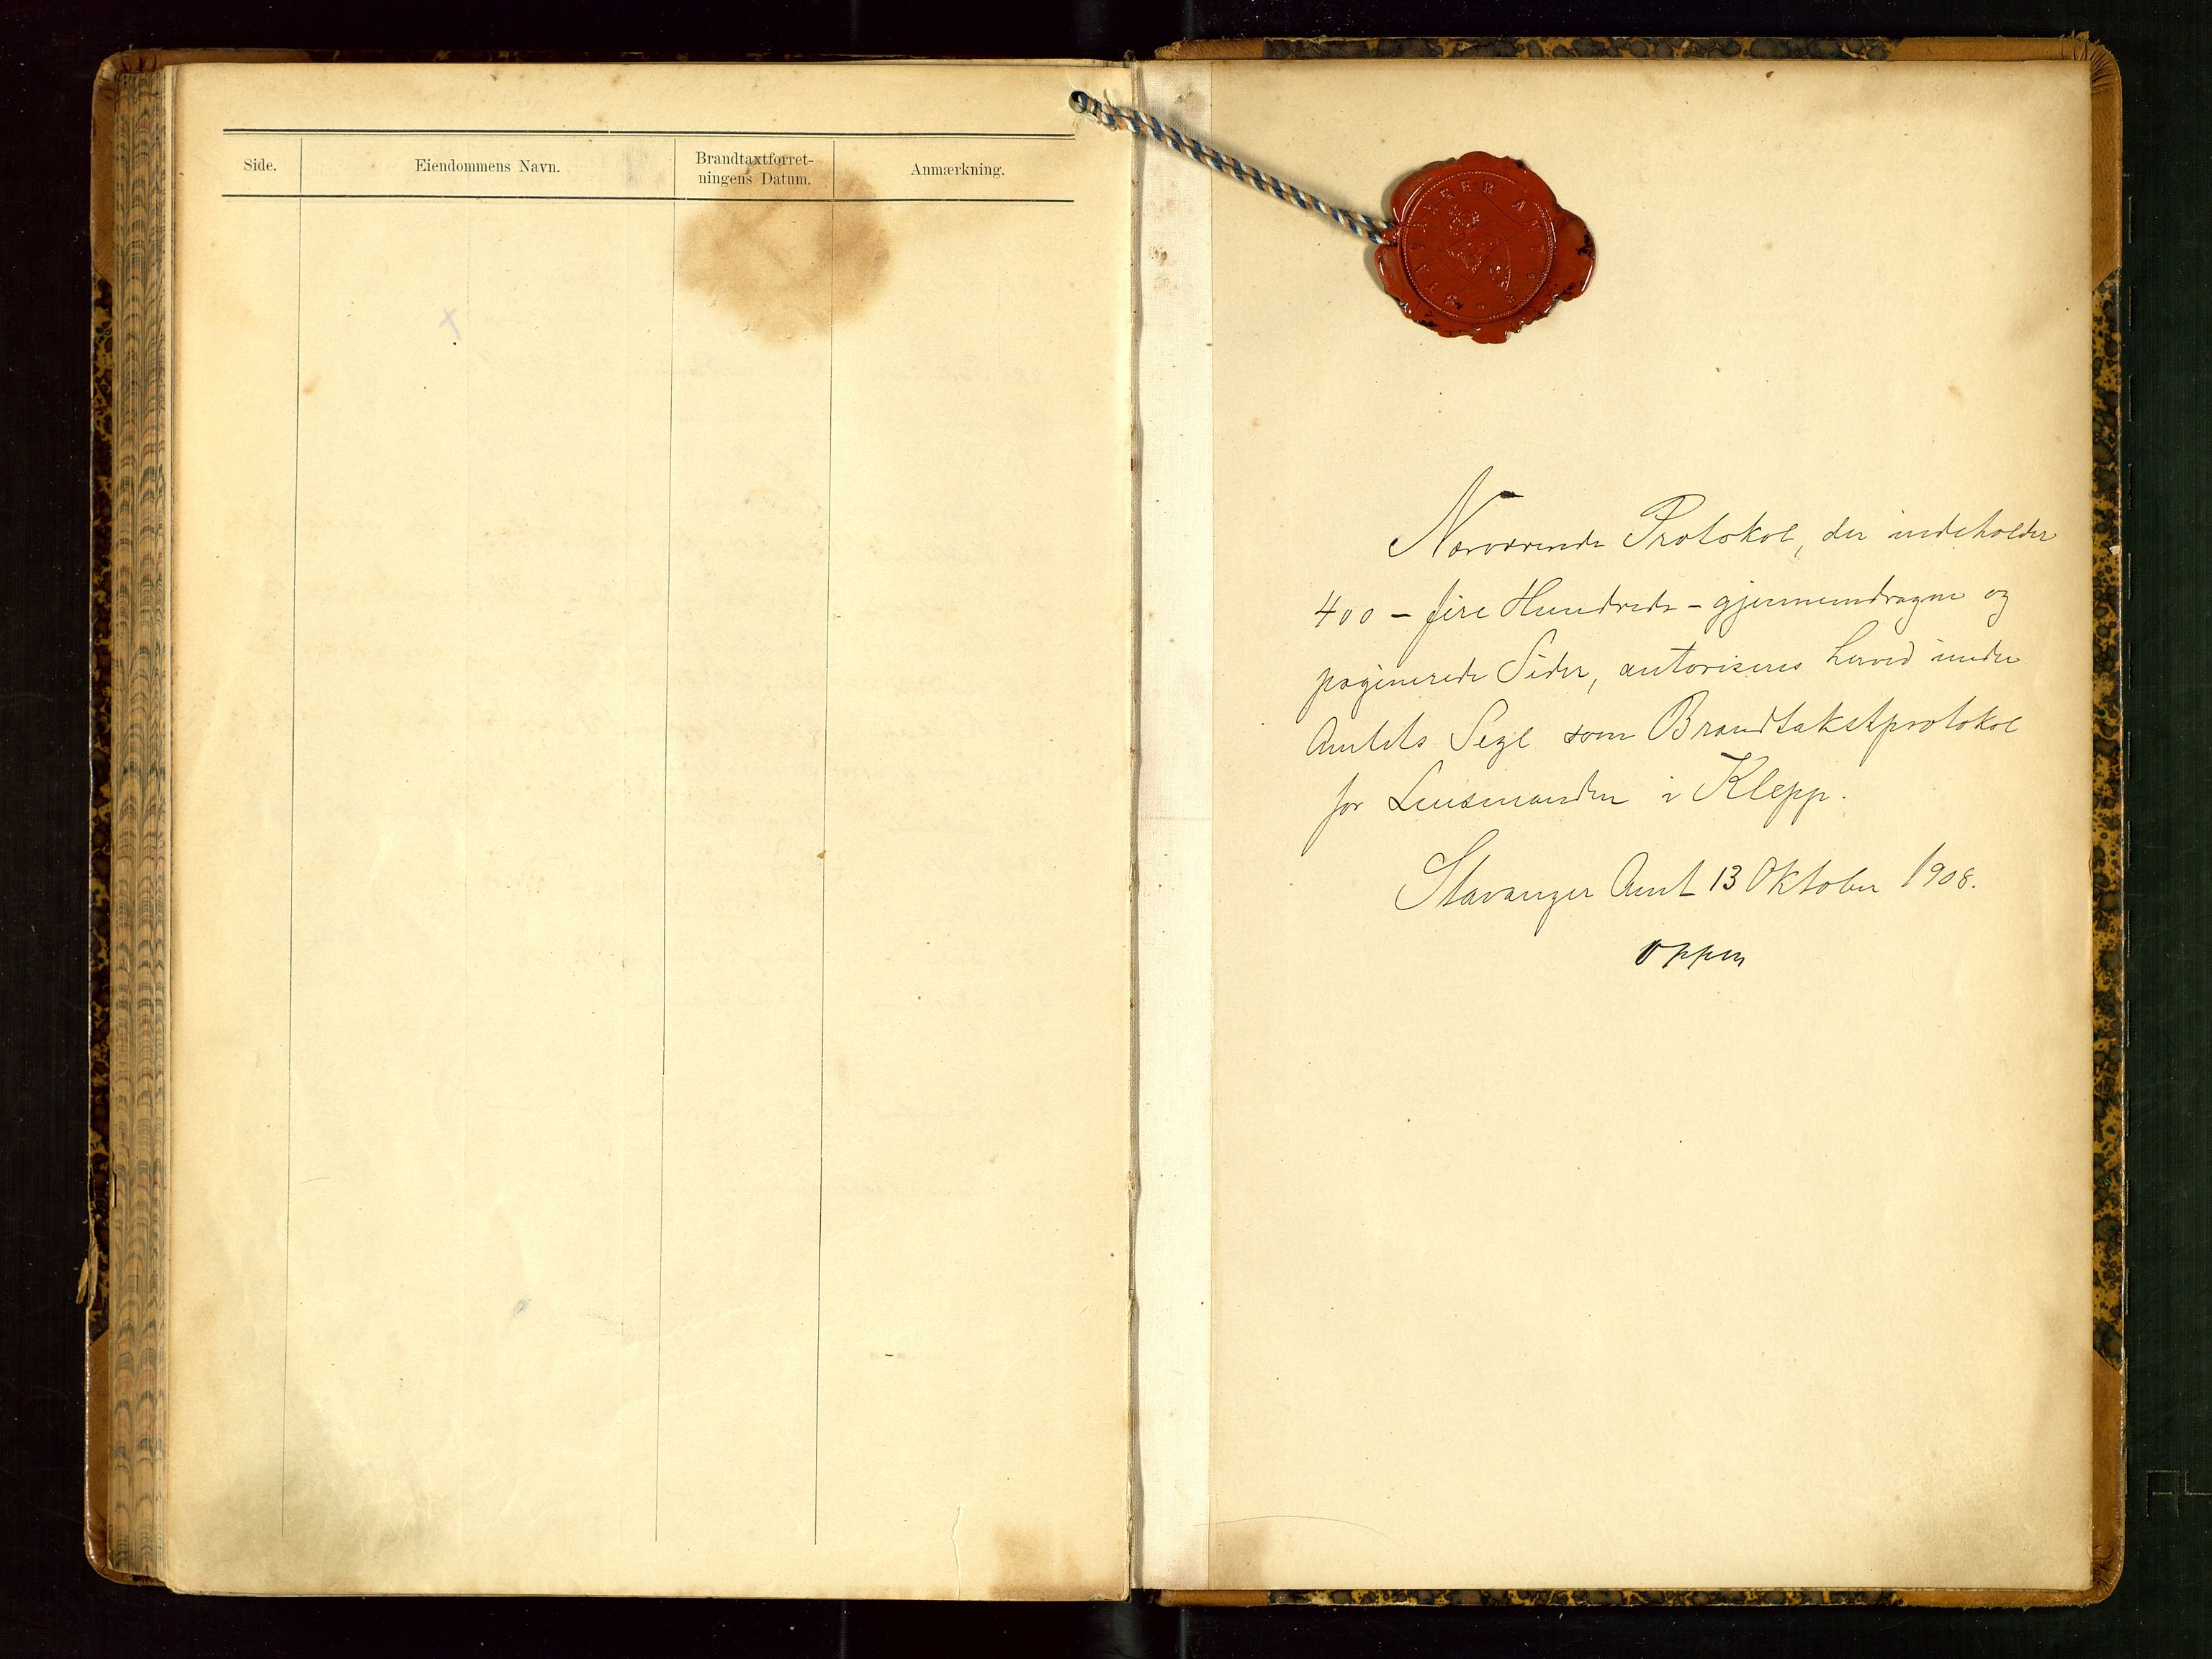 Side.
Eiendommens Navn.
Brandtaxtforret-
ningens Datum.
Anmærkning.
STAVANGER AMTS
Nærværende Protokol, der indeholder
400 – fire Hundrede – gjennemdragne og
paginerede Sider, autoriseres herved under
Amtets Segl som Brandtakstprotokol
for Lensmanden i Klepp.
Stavanger Amt 13 Oktober 1908.
Oppen